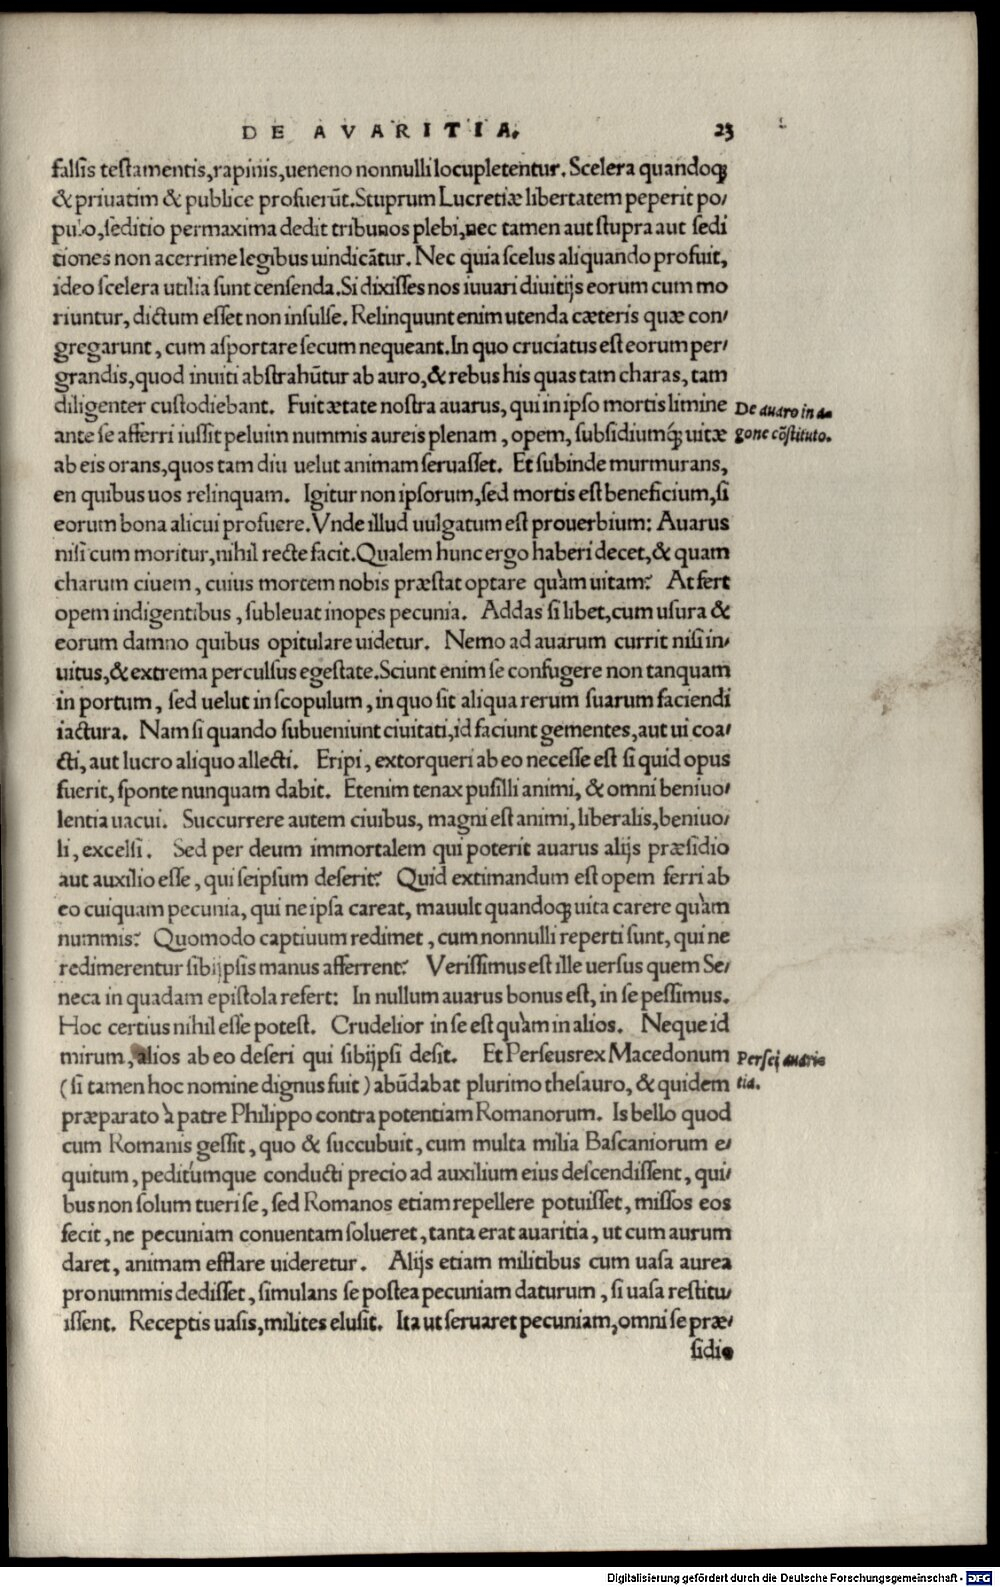 DE AVARITIA. 23
falsis testamentis, rapinis, ueneno nonnulli locupletentur. Scelera quandoqꝫ
& priuatim & publice profuerũt. Stuprum Lucretiæ libertatem peperit po/
pulo, seditio permaxima dedit tribunos plebi, nec tamen aut stupra aut sedi
tiones non acerrime legibus uindicãtur. Nec quia scelus aliquando profuit,
ideo scelera utilia sunt censenda. Si dixisses nos iuuari diuitijs eorum cum mo
riuntur, dictum esset non insulse. Relinquunt enim utenda cæteris quæ con/
gregarunt, cum asportare secum nequeant. In quo cruciatus est eorum per/
grandis, quod inuiti abstrahũtur ab auro, & rebus his quas tam charas, tam
diligenter custodiebant. Fuit ætate nostra auarus, qui in ipso mortis limine
De auaro in a-
ante se afferri iussit peluim nummis aureis plenam, opem, subsidiumq́ꝫ uitæ
gone cõstituto.
ab eis orans, quos tam diu uelut animam seruasset. Et subinde murmurans,
en quibus uos relinquam. Igitur non ipsorum, sed mortis est beneficium, si
eorum bona alicui profuere. Vnde illud uulgatum est prouerbium: Auarus
nisi cum moritur, nihil recte facit. Qualem hunc ergo haberi decet, & quam
charum ciuem, cuius mortem nobis præstat optare quàm uitam? At fert
opem indigentibus, subleuat inopes pecunia. Addas si libet, cum usura &
eorum damno quibus opitulare uidetur. Nemo ad auarum currit nisi in/
uitus, & extrema perculsus egestate. Sciunt enim se confugere non tanquam
in portum, sed uelut in scopulum, in quo sit aliqua rerum suarum faciendi
iactura. Nam si quando subueniunt ciuitati, id faciunt gementes, aut ui coa/
cti, aut lucro aliquo allecti. Eripi, extorqueri ab eo necesse est si quid opus
fuerit, sponte nunquam dabit. Etenim tenax pusilli animi, & omni beniuo/
lentia uacui. Succurrere autem ciuibus, magni est animi, liberalis, beniuo/
li, excelsi. Sed per deum immortalem qui poterit auarus alijs præsidio
aut auxilio esse, qui seipsum deserit? Quid extimandum est opem ferri ab
eo cuiquam pecunia, qui ne ipsa careat, mauult quandoqꝫ uita carere quàm
nummis? Quomodo captiuum redimet, cum nonnulli reperti sunt, qui ne
redimerentur sibijpsis manus afferrent? Verissimus est ille uersus quem Se/
neca in quadam epistola refert: In nullum auarus bonus est, in se pessimus.
Hoc certius nihil esse potest. Crudelior in se est quàm in alios. Neque id
mirum, alios ab eo deseri qui sibijpsi desit. Et Perseus rex Macedonum
Persej auari-
(si tamen hoc nomine dignus fuit) abũdabat plurimo thesauro, & quidem
tia.
præparato à patre Philippo contra potentiam Romanorum. Is bello quod
cum Romanis gessit, quo & succubuit, cum multa milia Bascaniorum e/
quitum, peditúmque conducti precio ad auxilium eius descendissent, qui/
bus non solum tueri se, sed Romanos etiam repellere potuisset, missos eos
fecit, ne pecuniam conuentam solueret, tanta erat auaritia, ut cum aurum
daret, animam efflare uideretur. Alijs etiam militibus cum uasa aurea
pro nummis dedisset, simulans se postea pecuniam daturum, si uasa restitu/
issent. Receptis uasis, milites elusit. Ita ut seruaret pecuniam, omni se præ/
sidio
Digitalisierung gefördert durch die Deutsche Forschungsgemeinschaft - DFG